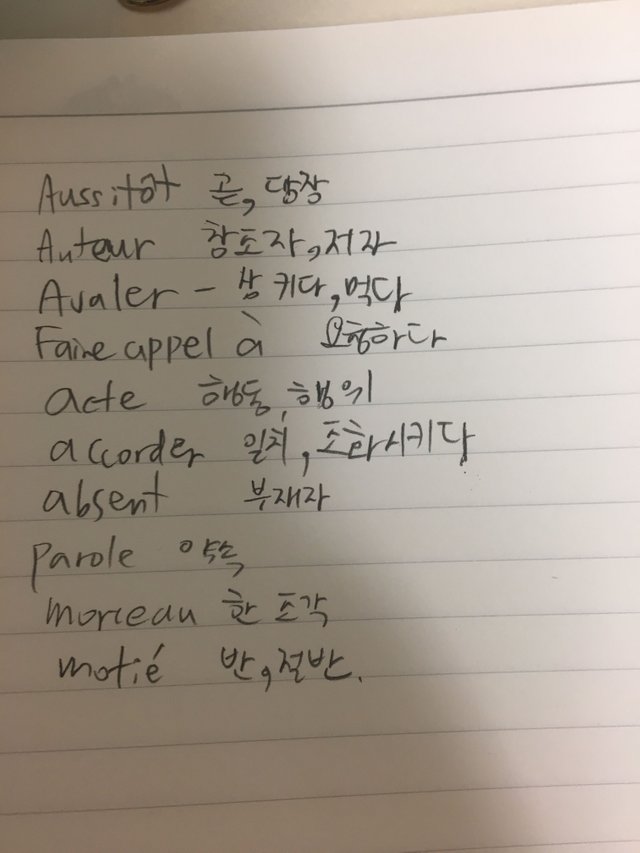 Aussitôt 곧,당장
Auteur 창조자, 저자
Avaler - 삼키다, 먹다
Faire appel à 요청하다
acte 행동, 행위
accorder 일치, 조화시키다
absent 부재자
parole 약속
morceau 한 조각
motié 반, 절반.